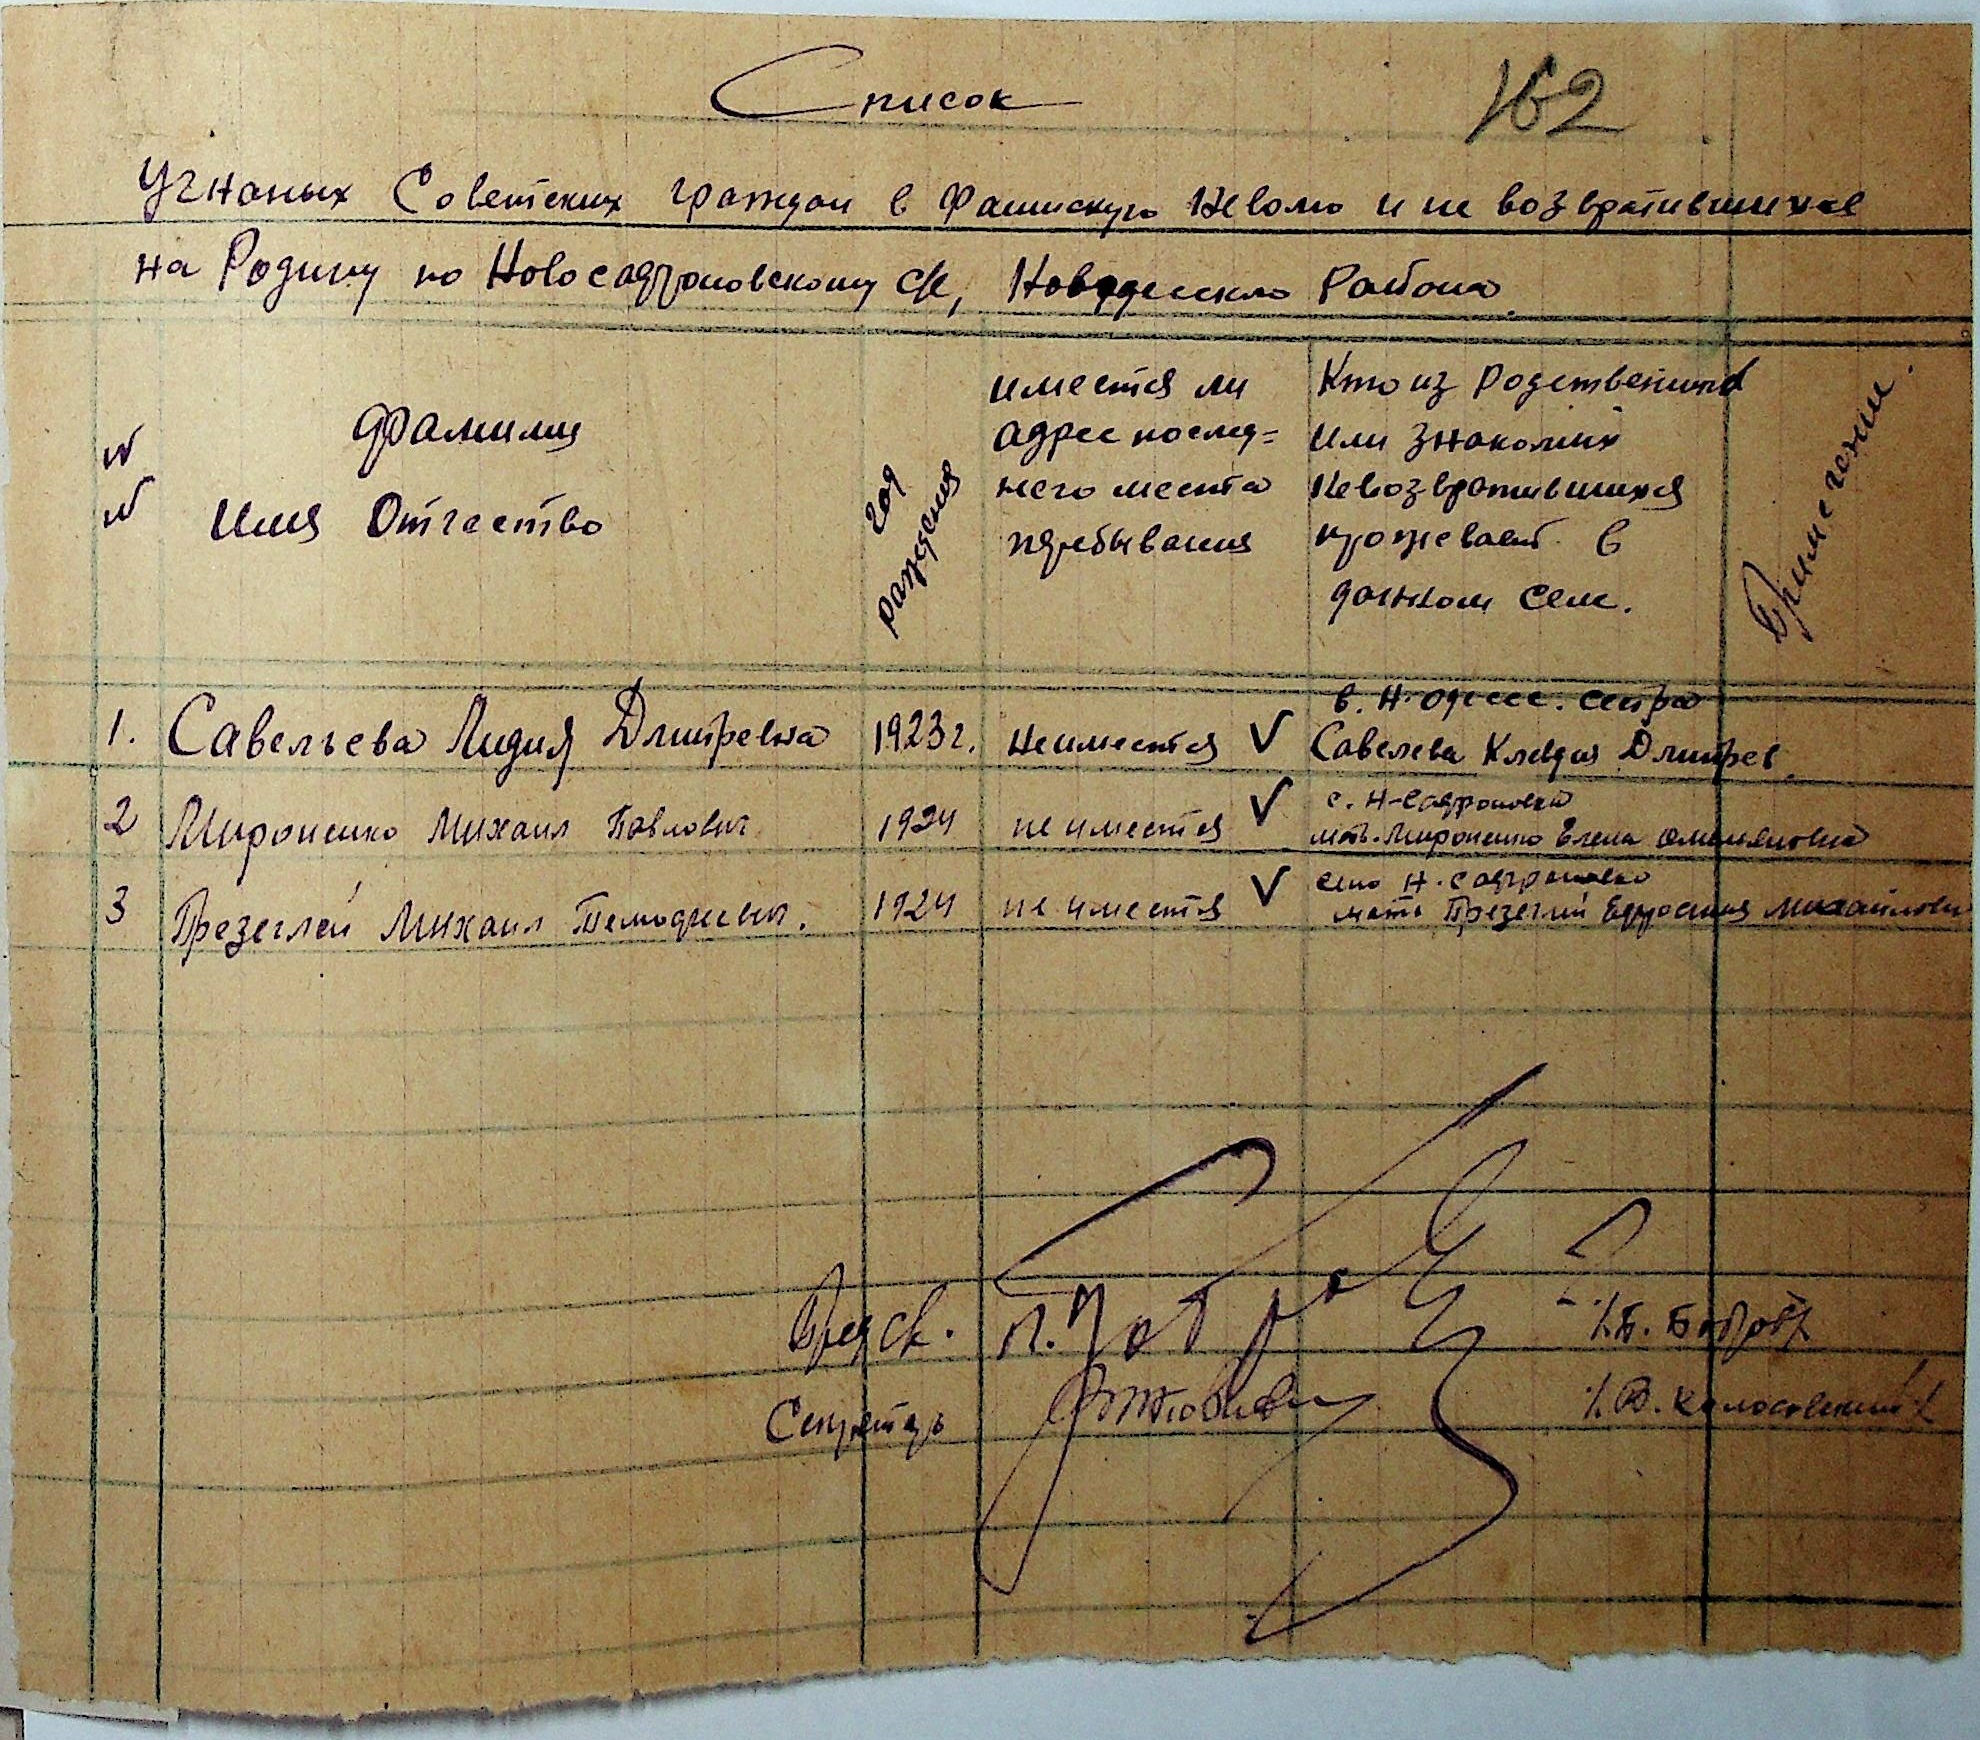 Список
162
Угнаных Советских граждан в Фашискую Неволю и не возвратившихся
на Родину по Новосафроновскому с/с, Новодесского Района
№
№
Фамилия
Имя Отчество
год
рождения
имеется ли
адрес послед=
него места
пребывания
Кто из Родственников
или знакомых
Невозвратившихся
проживает в
данном селе.
Примечание.
1. Савельева Лидия Дмитревна 1923г. не имеется V в. Н. Одесс. сестра
Савелева Клавдия Дмитрев.
2 Мироненко Михаил Павлович 1924 не имеется V с. Н-Сафроновка
мать-Мироненко Елена
3 Презеглей Михаил 1924 не имеется V село Н. Сафроновка
мать Презеглей Ефросиния Михайловн
Пред с/с.
/Б. Бобров/
Секретарь
/В. Колосовский/